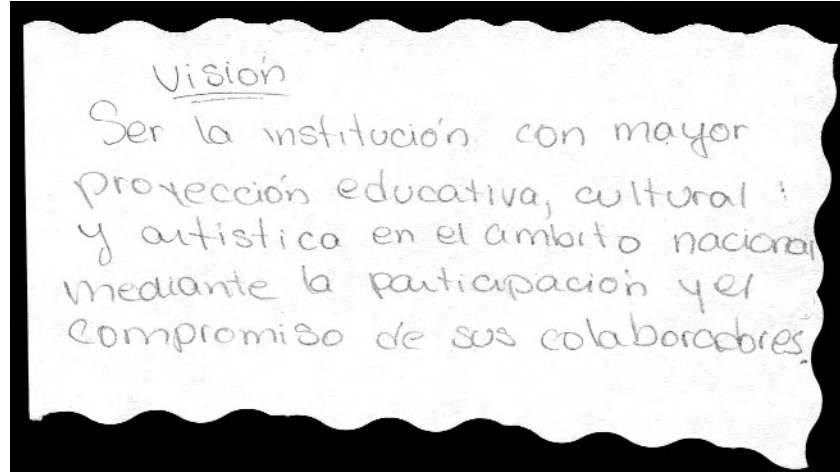 Visión
Ser la institución con mayor
proyección educativa, cultural
y artistica en el ambito nacional
mediante la participación y el
compromiso de sus colaboradores.